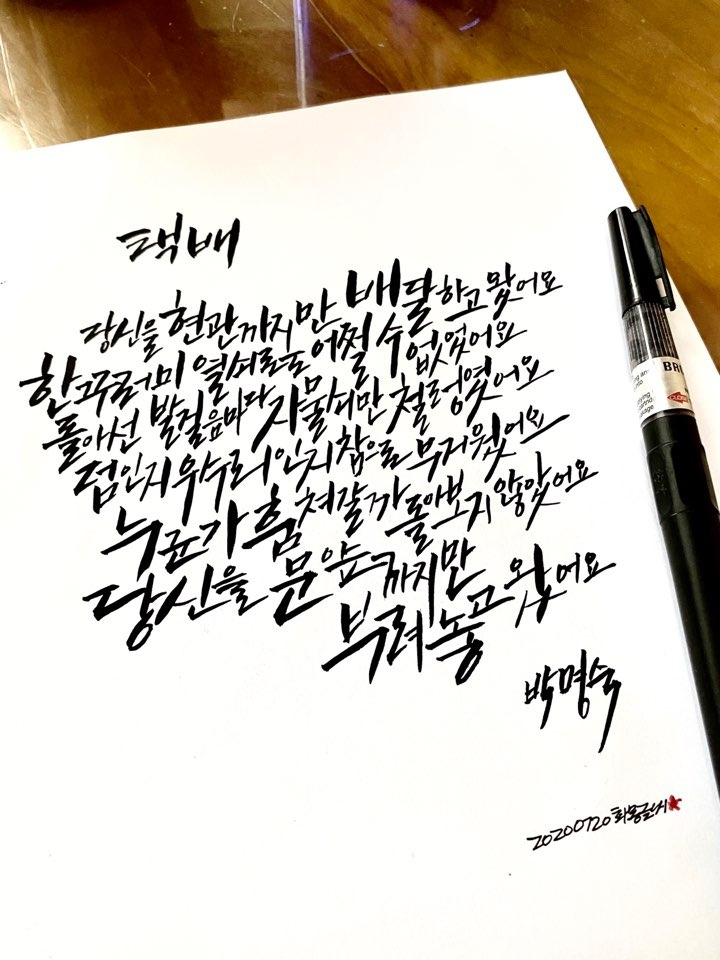 택배
당신을 현관까지만 배달하고 왔어요
한 꾸러미 열쇠로도 어쩔 수 없었어요
돌아선 발걸음마다 자물쇠만 철렁였어요
덤인지 우수리인지 참으로 무거웠어요
누군가 훔쳐갈까 돌아보지 않았어요
당신을 문 앞까지만
부려놓고 왔어요
박명숙
20200720
BR